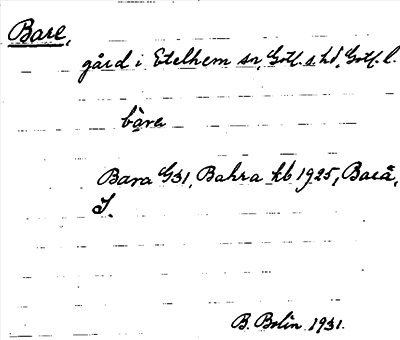 Bare,
gård i Etelhem sn, Gotl. s. hd, Gotl. l.
bàra
Bara G31, Bahra kb 1925, Bara
I.
B. Bolin 1931.